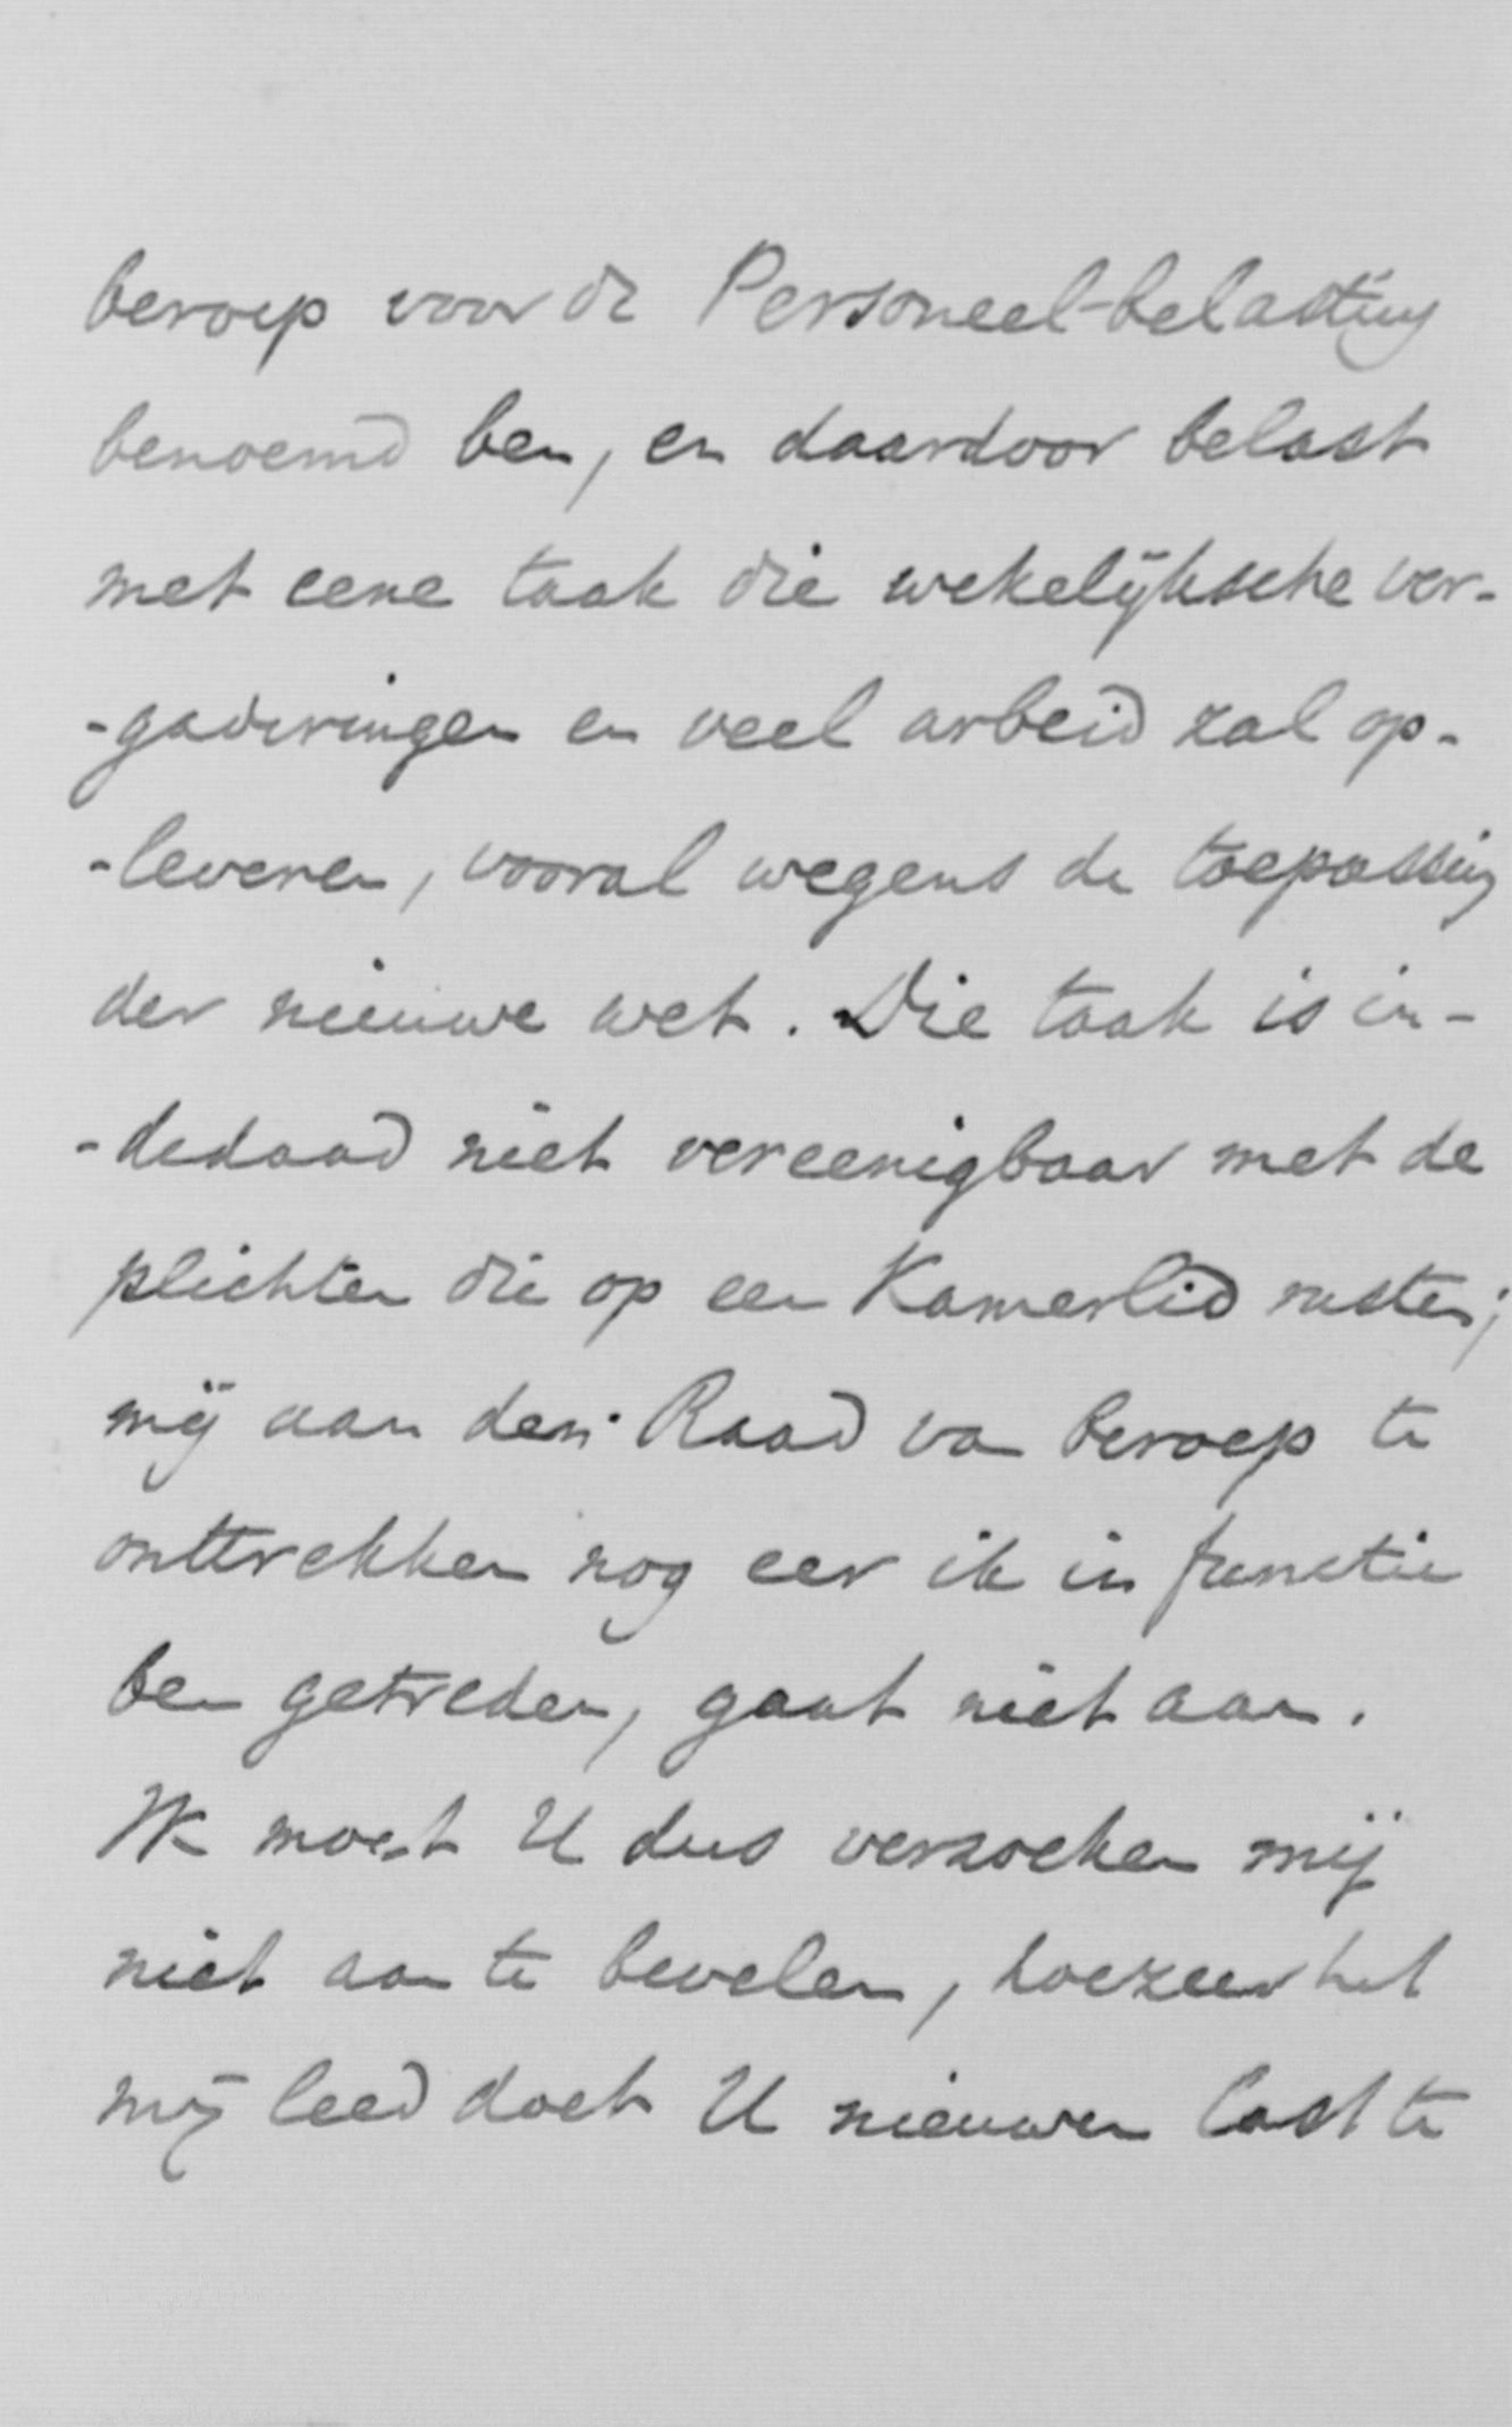 beroep voor de Personeel-belasting
benoemd ben, en daardoor belast
met eene taak die wekelijksche ver-
-gaderingen en veel arbeid zal op-
-leveren, vooral wegens de toepassing
der nieuwe wet. Die taak is in-
-dedaad niet vereenigbaar met de
plichten die op een Kamerlid rusten;
mij aan den Raad van beroep te
onttrekken nog eer ik in functie
ben getreden, gaat niet aan.
Ik moet U dus verzoeken mij
niet aan te bevelen, hoezeer het
mij leed doet U nieuwen last te